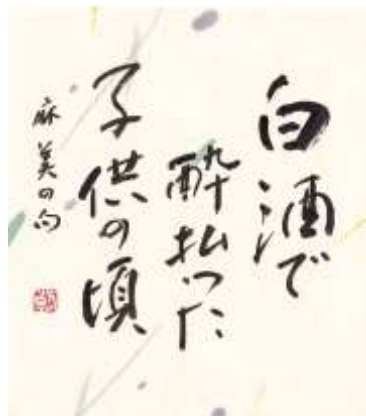 白酒で
酔払った
子供の頃
麻美の句